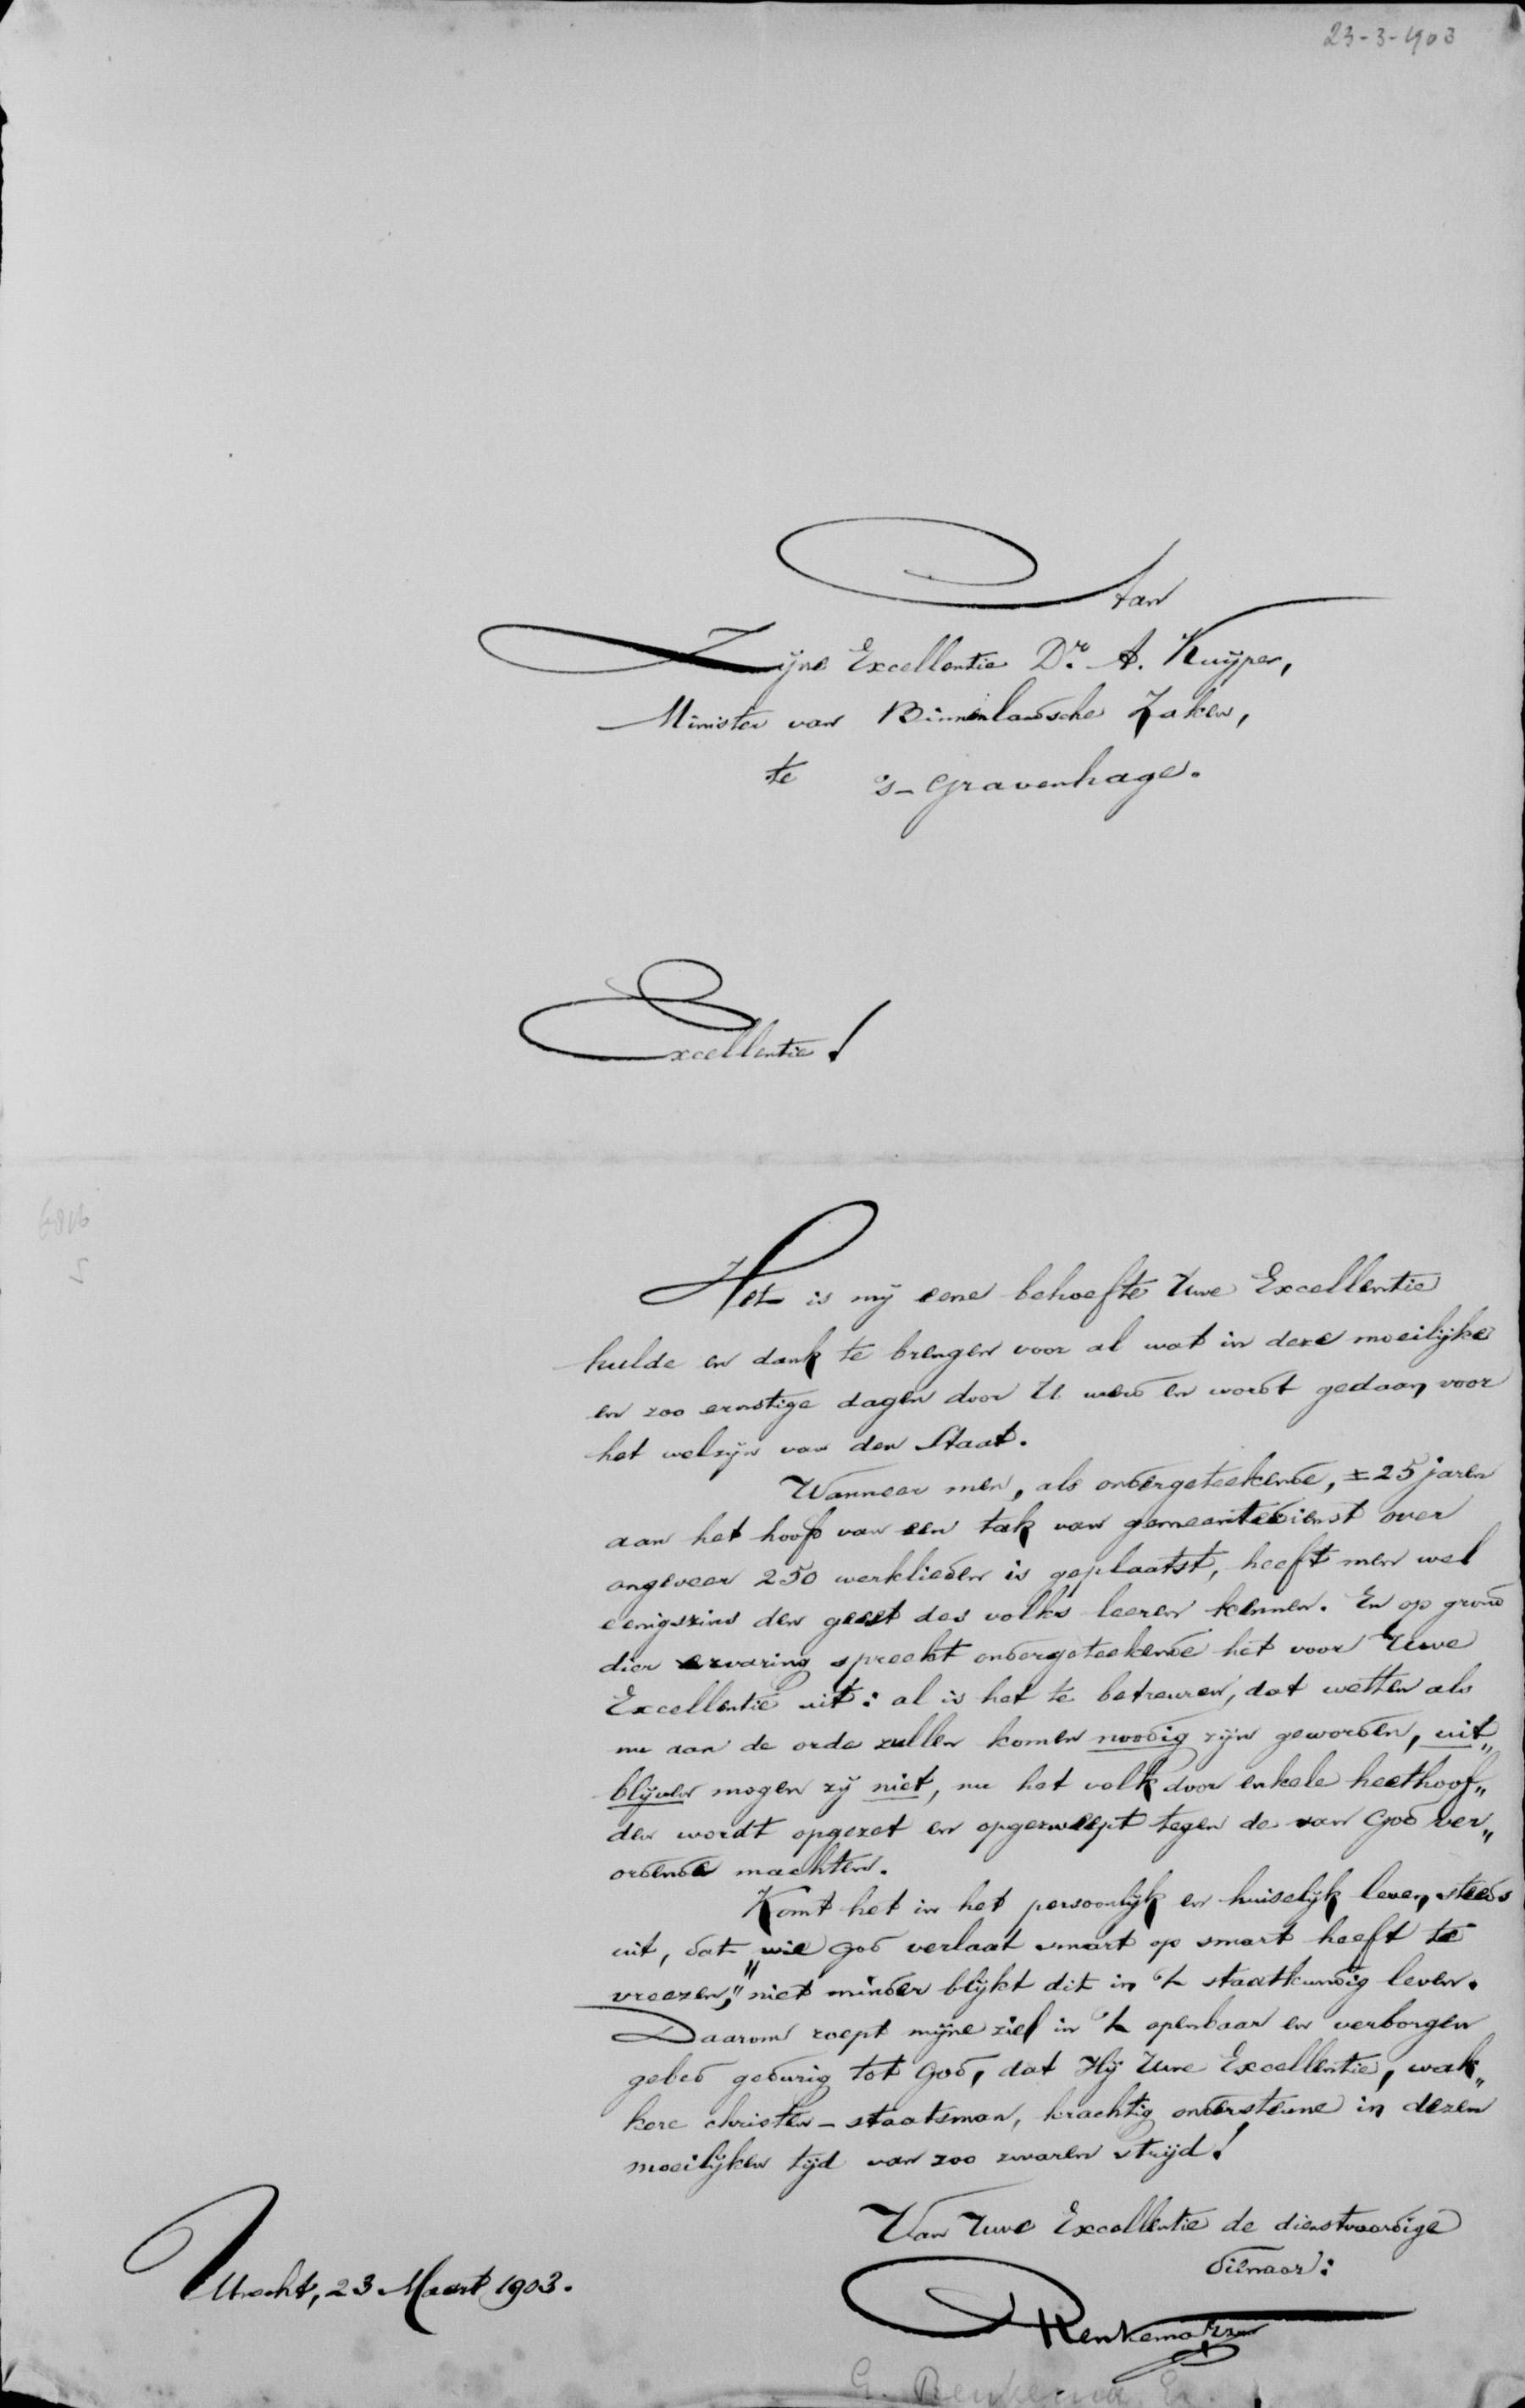 23-3-1903
Aan
Zijne Excellentie Dr. A. Kuijper,
Minister van Binnenlandsche Zaken,
te 's-Gravenhage.
Excellentie!
6816
5
Het is mij eene behoefte Uwe Excellentie
hulde en dank te brengen voor al wat in deze moeilijke
en zoo ernstige dagen door U werd en wordt gedaan voor
het welzijn van den Staat.
Wanneer men, als ondergeteekende, ± 25 jaren
aan het hoofd van een tak van gemeentedienst over
ongeveer 250 werklieden is geplaatst, heeft men wel
eenigszins den geest des volks leeren kennen. En op grond
dier ervaring spreekt ondergeteekende het voor Uwe
Excellentie uit: al is het te betreuren, dat wetten als
nu aan de orde zullen komen noodig zijn geworden, uit„
blijven mogen zij niet, nu het volk door enkele heethoof„
den wordt opgezet en opgezweept tegen de van God ver„
ordende machten.
Komt het in het persoonlijk en huiselijk leven steeds
uit, dat „wie God verlaat smart op smart heeft te
vreezen," niet minder blijkt dit in 't staatkundig leven.
Daarom roept mijne ziel in 't openbaar en verborgen
gebed gedurig tot God, dat Hij Uwe Excellentie, wak„
kere christen-staatsman, krachtig ondersteune in dezen
moeilijken tijd van zoo zwaren strijd!
Van Uwe Excellentie de dienstvaardige
dienaar:
Utrecht, 23 Maart 1903.
Renkema
G. Renkema Ez.